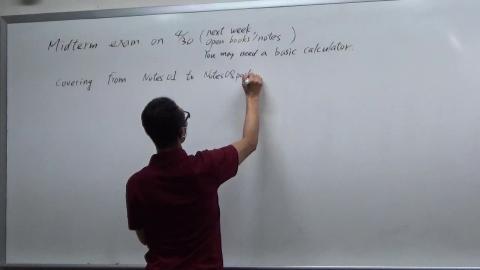 Midterm exam on 4/30 (next week
open books/notes)
You may need a basic calculator.
Covering from Notes01 to Notes08